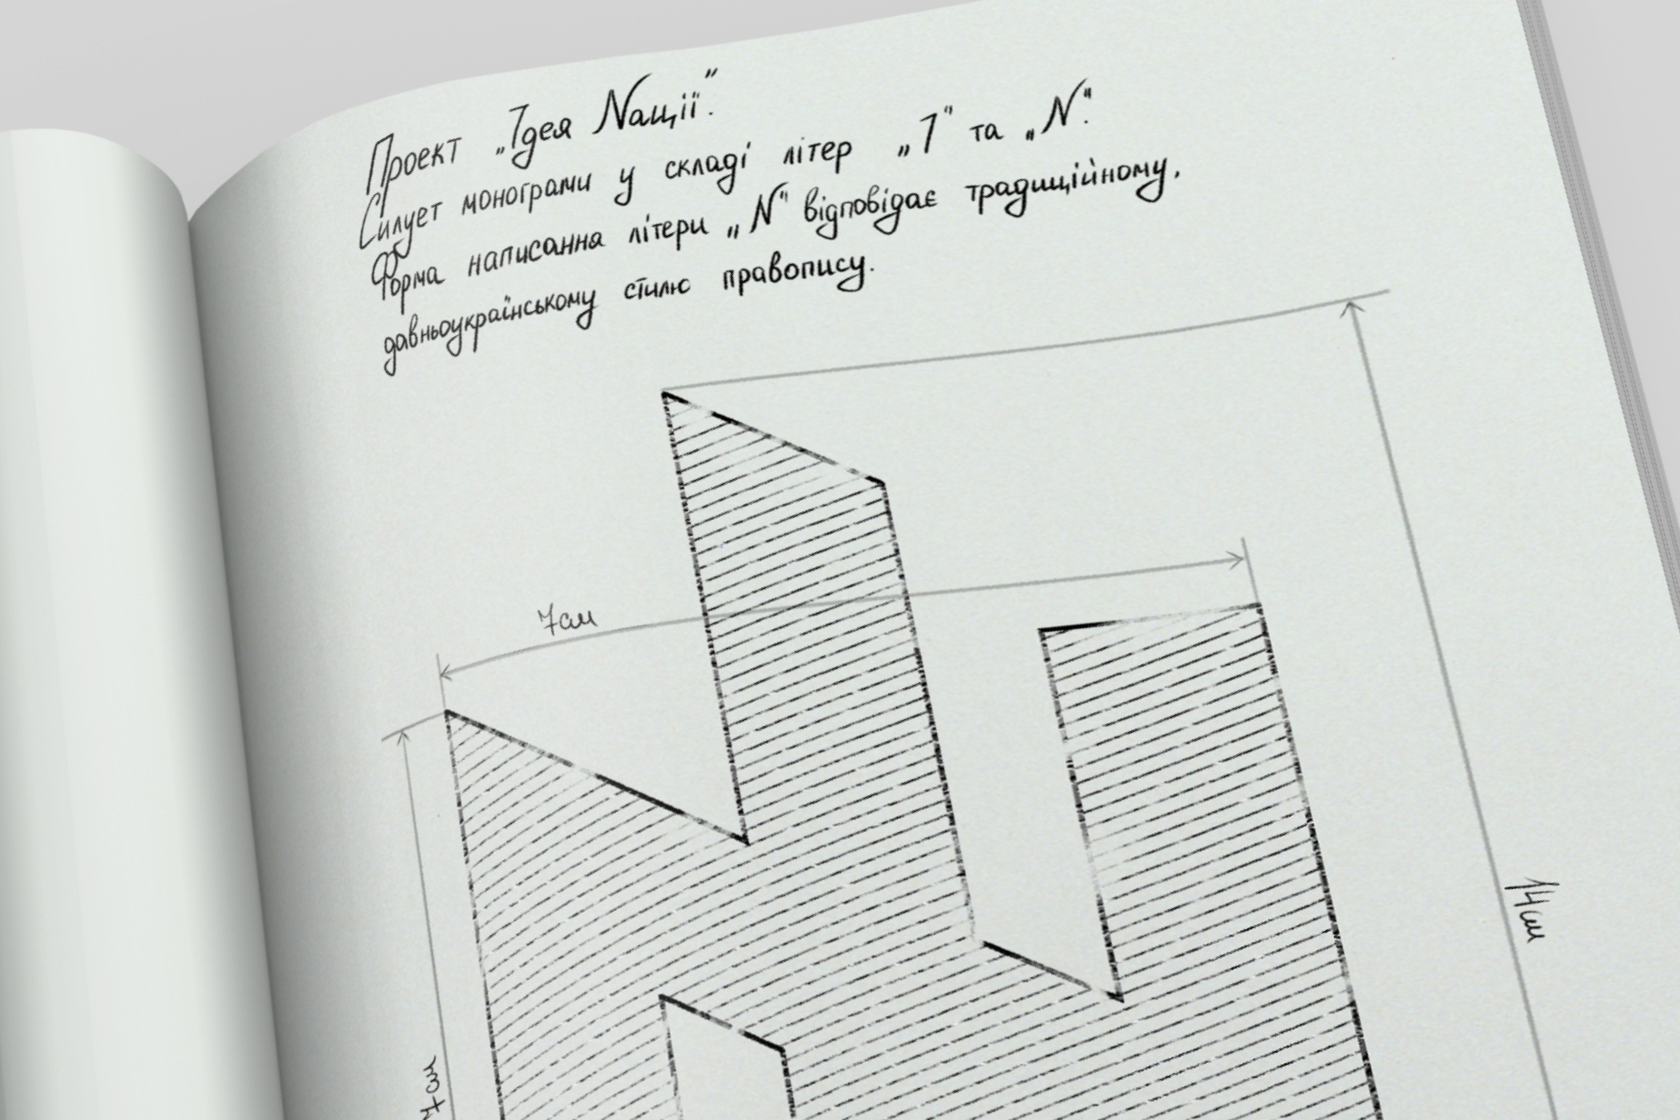 Проект „Ідея Nації".
Силует монограми у складі літер „І" та „N".
Форма написання літери „N" відповідає традиційному,
давньоукраїнському стилю правопису.
7см
14см
7см